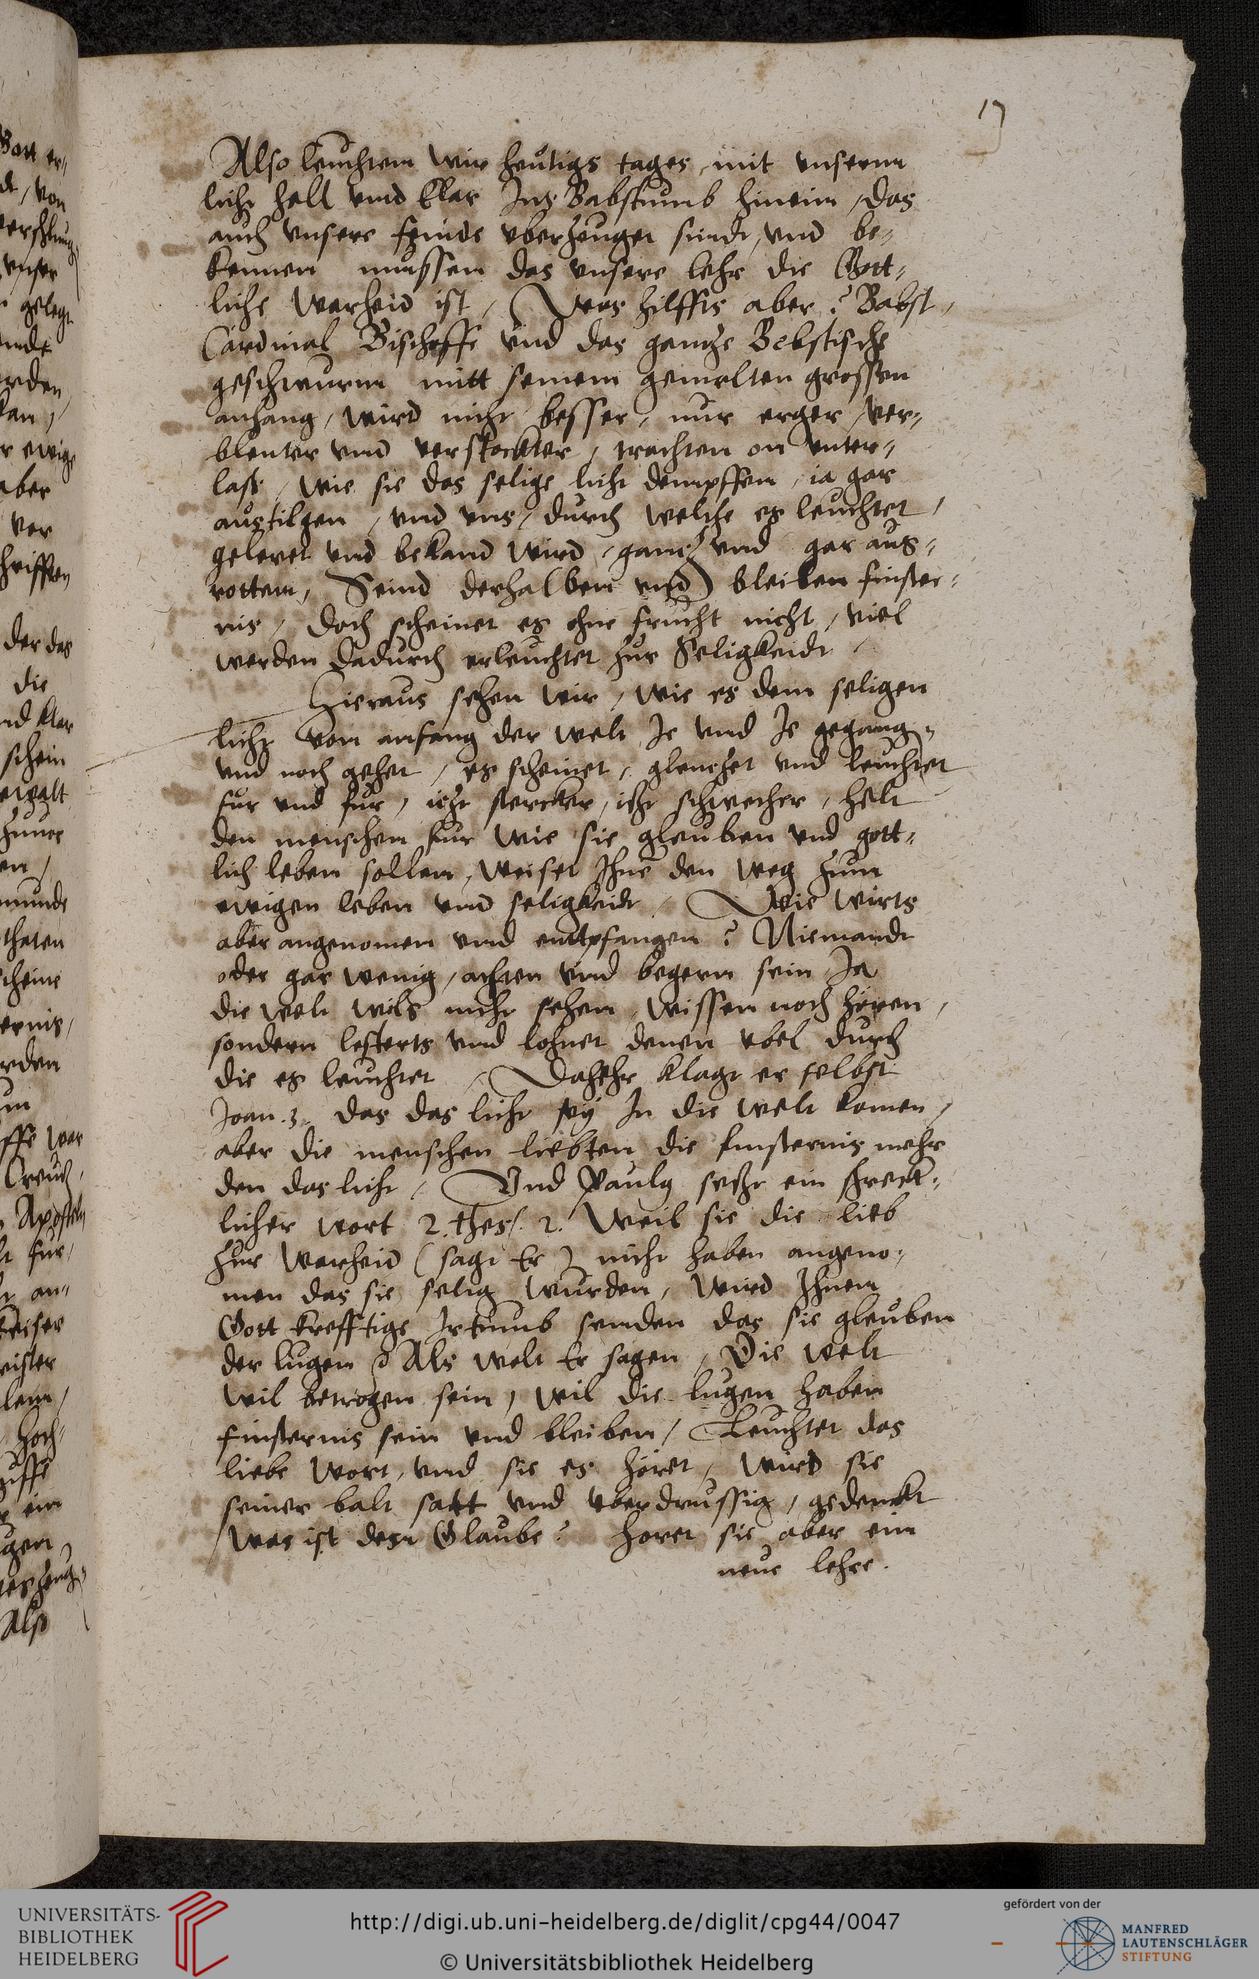 17
Also leuchten wir heutigs tages mit unserm
licht hell vnd klar Ins Babstumb hinein, das
auch vnsere feinde vberzeuget sindt, vnd be-
kennen mussen das vnsere lehr die Gott-
liche Warheid ist, Was hilffts aber? Babst,
Cardinal Bischoffe vnd das gantze Bebstische
geschwurm mitt seinem gemelten grossen
anhang, wird nicht besser, nur erger, ver-
blenter vnd verstockter, trachten on vnter-
lass, wie sie das selige licht dempffen, ia gar
austilgen, vnd vns, durch welche es leuchtet,
geleret vnd bekand wird, gantz vnd gar aus-
rotten, Seind derhalben vnd bleiben finster-
nis, doch scheinet es ohne frucht nicht, viel
werden dadurch erleuchtet zur Seligkeidt
Hieraus sehen wir, wie es dem seligen
licht von anfang der welt Je vnd Je gegangen
vnd noch gehet, es scheinet, glentzet vnd leuchtet
fur vnd fur, itzt stercker, itzt schwecher, helt
den menschen fur wie sie gleuben vnd gott-
lich leben sollen, weiset Ihnen den weg zum
ewigen leben vnd seligkeidt. Wie wirts
aber angenomen vnd enttpfangen? Niemandt
oder gar wenig, achten vnd begern sein, Ja
die welt wils nicht sehen, wissen noch hören,
sondern lesterts vnd lohnet denen vbel durch
die es leuchtet, Daheher klagt er selbst
Joan. 3. das das licht sey In die welt komen,
aber die menschen liebten die finsternis mehr
den das licht, Vnd Paulus setzt ein schreck-
licher wort 2. thes. 2. Weil sie die lieb
zur Warheid (sagt Er) nicht haben angeno-
men das sie selig wurden, wird Ihnen
Gott krefftige Irtumb senden das sie gleuben
der lugen Als wolt Er sagen, Die welt
wil betrogen sein, wil die lugen haben
finsternis sein vnd bleiben, Leuchtet das
liebe wort, vnd sie es höret, wird sie
seiner balt satt vnd vberdrussig, gedenckt
was ist der Glaube? Höret sie aber ein
neue lehre.
der das
die
aber
ver
Also
UNIVERSITÄTS-
BIBLIOTHEK
HEIDELBERG
http://digi.ub.uni-heidelberg.de/diglit/cpg44/0047
© Universitätsbibliothek Heidelberg
gefördert von der
MANFRED
LAUTENSCHLÄGER
STIFTUNG